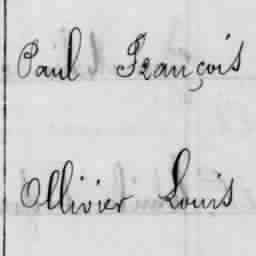 Paul François
Ollivier Louis